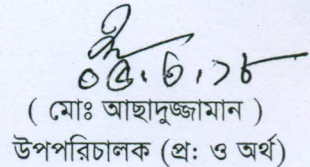 ০৫.৮.১৮
( মোঃ আছাদুজ্জামান )
উপপরিচালক (প্র: ও অর্থ)